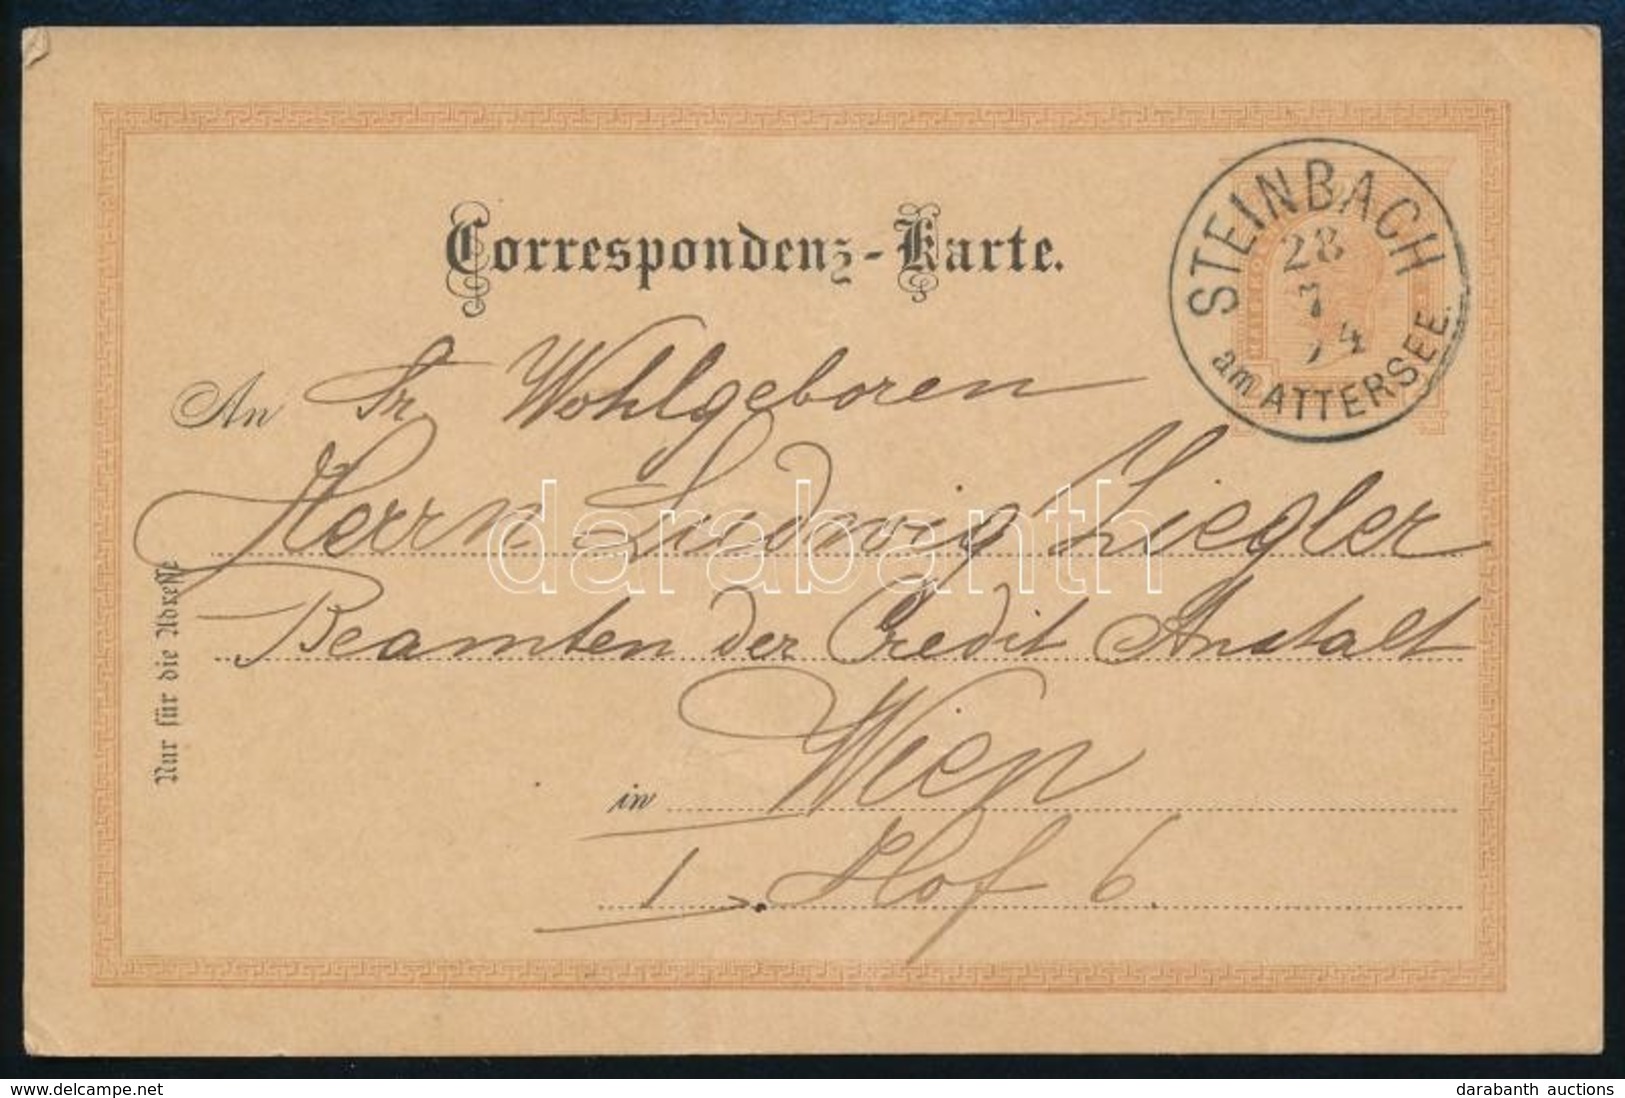 Correspondenz-Karte.
STEINBACH
28
7
94
am ATTERSEE.
An Sr Wohlgeboren
Herrn Ludwig Ziegler
Beamten der Credit Anstalt
in Wien
I. Hof 6.
Nur für die Adresse
darabanth
delcampe.net
darabanth auctions